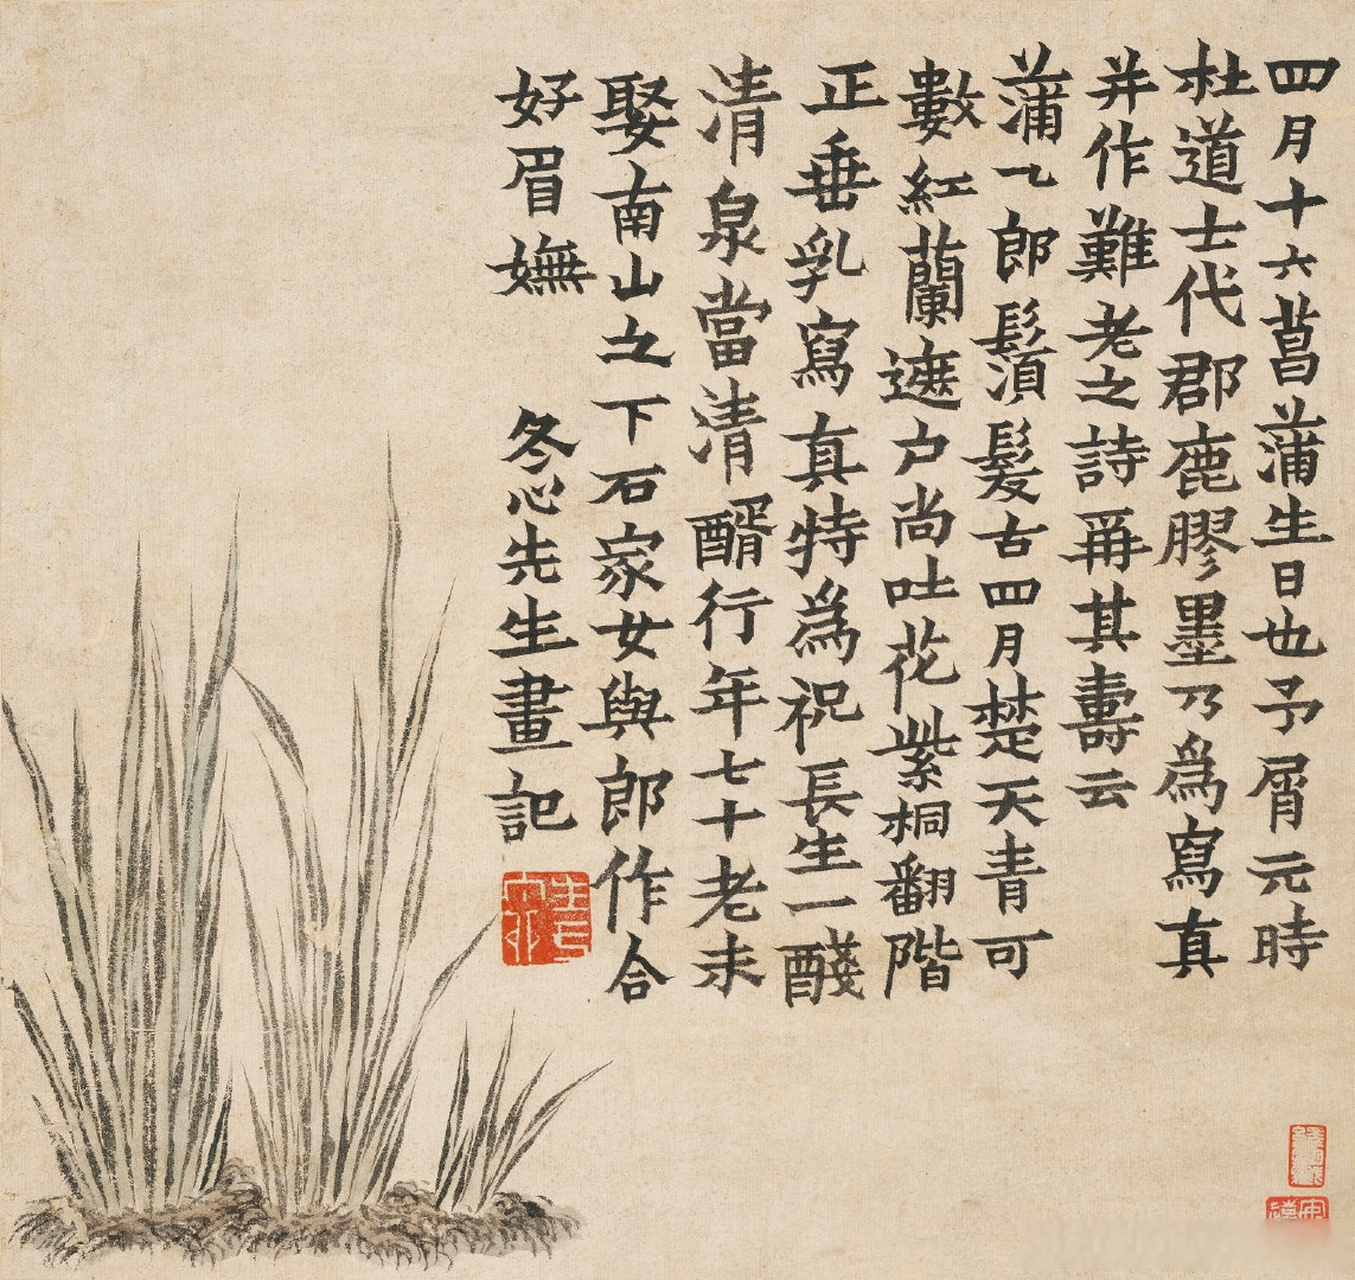 四月十六菖蒲生日也予屑元時
杜道士代郡鹿膠墨乃為寫真
并作難老之詩爯其壽云
蒲乁郎鬚髮古四月楚天青可
數紅蘭遮户尚吐花紫桐翻階
正垂乳寫真特為祝長生一醆
清泉當清醑行年七十老未
娶南山之下石家女與郎作合
好眉嫵
冬心先生畫記